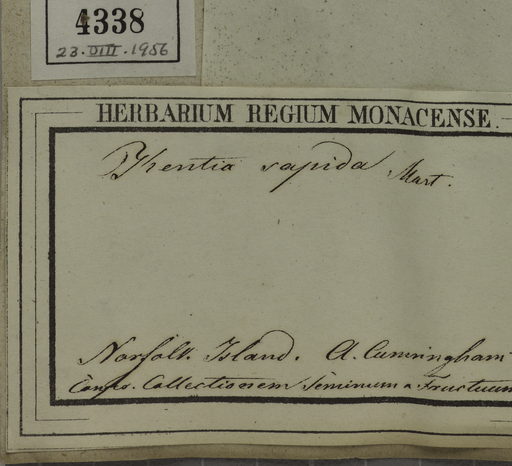 4338
23.VIII.1956
HERBARIUM REGIUM MONACENSE.
Kentia sapida Mart.
Norfolk Island. A. Cunningham
Collectionem Seminum & Fructuum